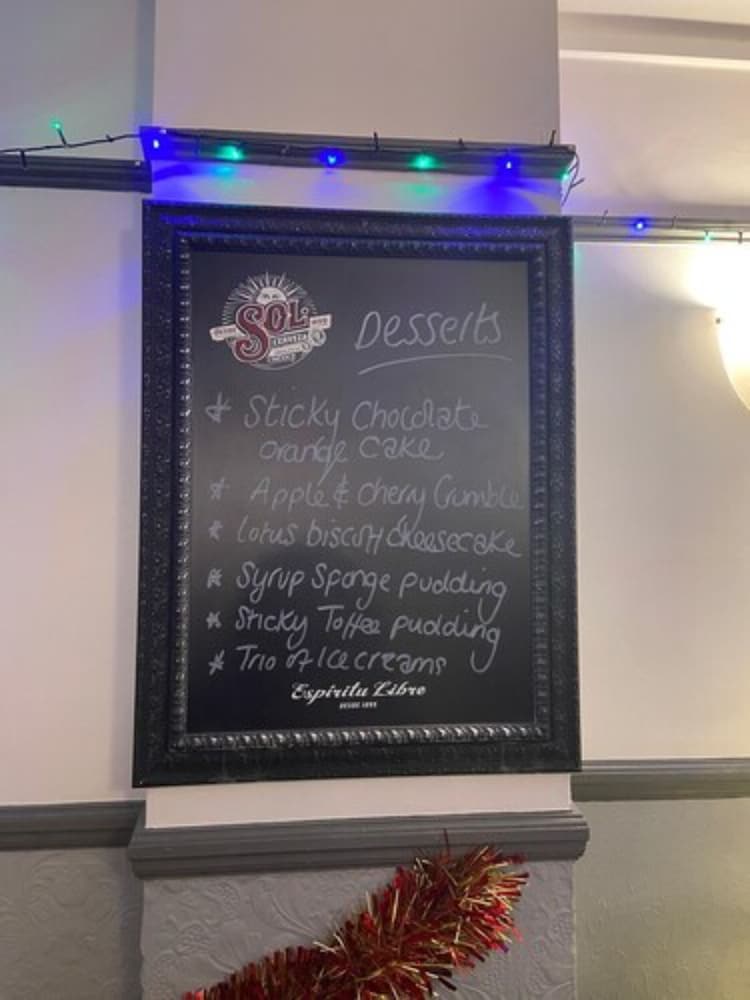 SOL
CERVEZA
Desserts
* Sticky Chocolate
orange cake
* Apple & cherry Crumble
* lotus biscoff cheesecake
* Syrup Sponge pudding
* Sticky Toffee pudding
* Trio of Ice creams
Espíritu Libre
DESDE 1899